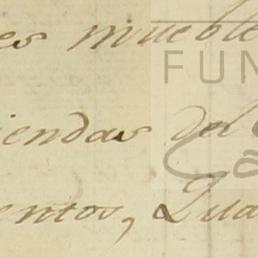 es mueble
FUN
iendas del
Ca
entos, Qua